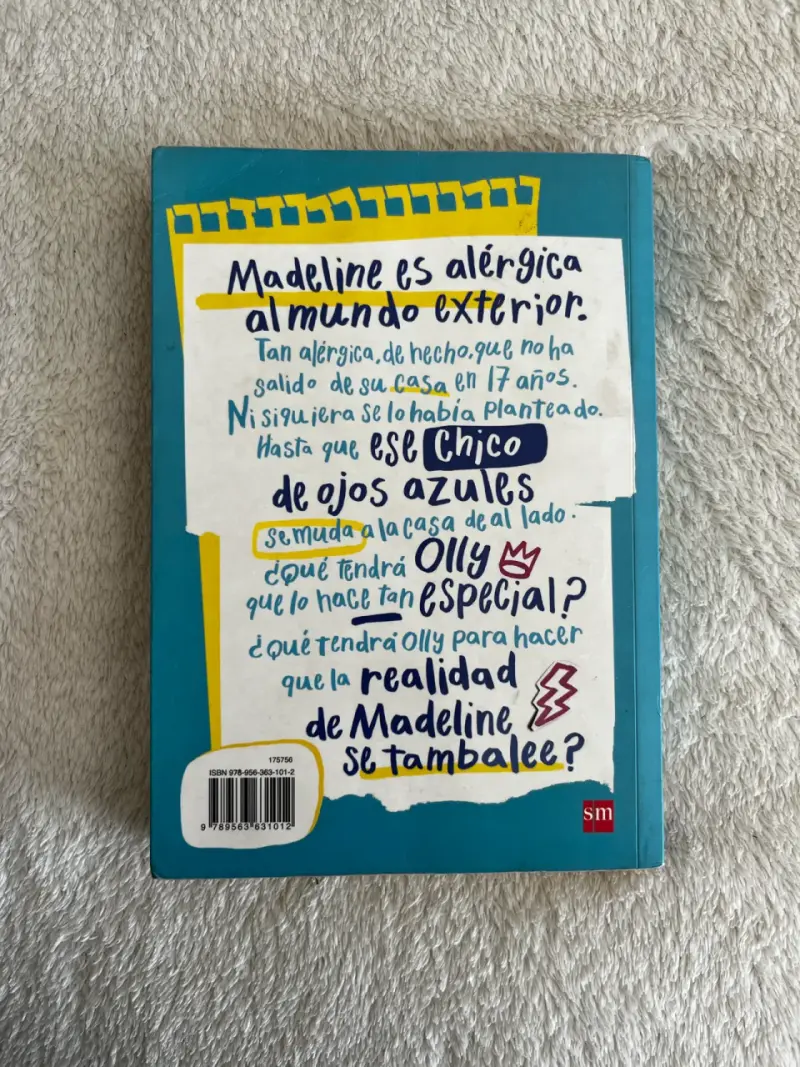 Madeline es alérgica
al mundo exterior.
Tan alérgica, de hecho, que no ha
salido de su casa en 17 años.
Ni siquiera se lo había planteado.
Hasta que ese chico
de ojos azules
se muda a la casa de al lado.
¿Qué tendrá Olly
que lo hace tan especial?
¿Qué tendrá Olly para hacer
que la realidad
de Madeline
se tambalee?
175756
ISBN 978-956-363-101-2
9 789563 631012
sm